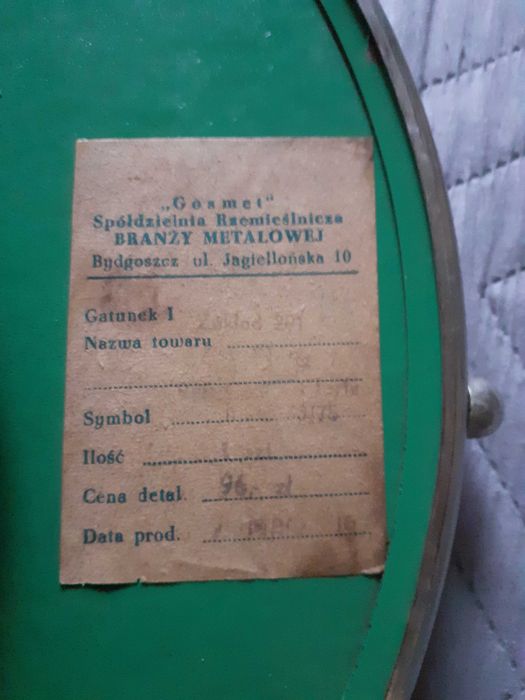 „Gosmet"
Spółdzielnia Rzemieślnicza
BRANŻY METALOWEJ
Bydgoszcz ul. Jagiellońska 10
Gatunek I
Zakład 201
Nazwa towaru
Symbol
Ilość
Cena detal. 96,- zł
Data prod.